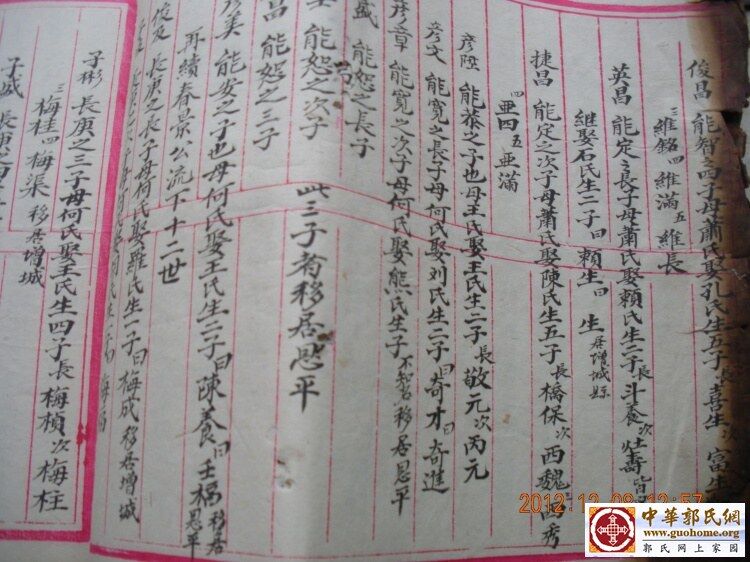 俊昌 能智之四子母蕭氏娶孔氏生五子長喜生次富生
三維銘四維滿五維長
英昌 能定之長子母蕭氏娶賴氏生二子長斗養次灶壽皆
継娶石氏生二子曰賴生曰 生居增城縣
捷昌 能定之次子母蕭氏娶陳氏生五子長橋保次西魏三西秀
四亜四五亜滿
彦陞 能恭之子也母王氏娶王氏生二子長敬元次丙元
彦文 能寬之長子母何氏娶刘氏生二子曰奇才曰奇進
彦章 能寬之次子母何氏娶熊氏生子不暂移居恩平
盛 能恕之長子
能恕之次子 此三子者移居恩平
昌 能恕之三子
彦美 能安之子也母何氏娶王氏生二子曰陳養曰壬福移居恩平
再續春景公流下十二世
俊及 長庚之長子母何氏娶羅氏生一子曰梅成移居增城
子彬 長庚之三子母何氏娶王氏生四子長梅楨次梅柱
三梅桂四梅渠移居增城
子盛 長庚之四子
2012.12.09 12:57
中華郭氏網
www.guohome.org
郭氏网上家园